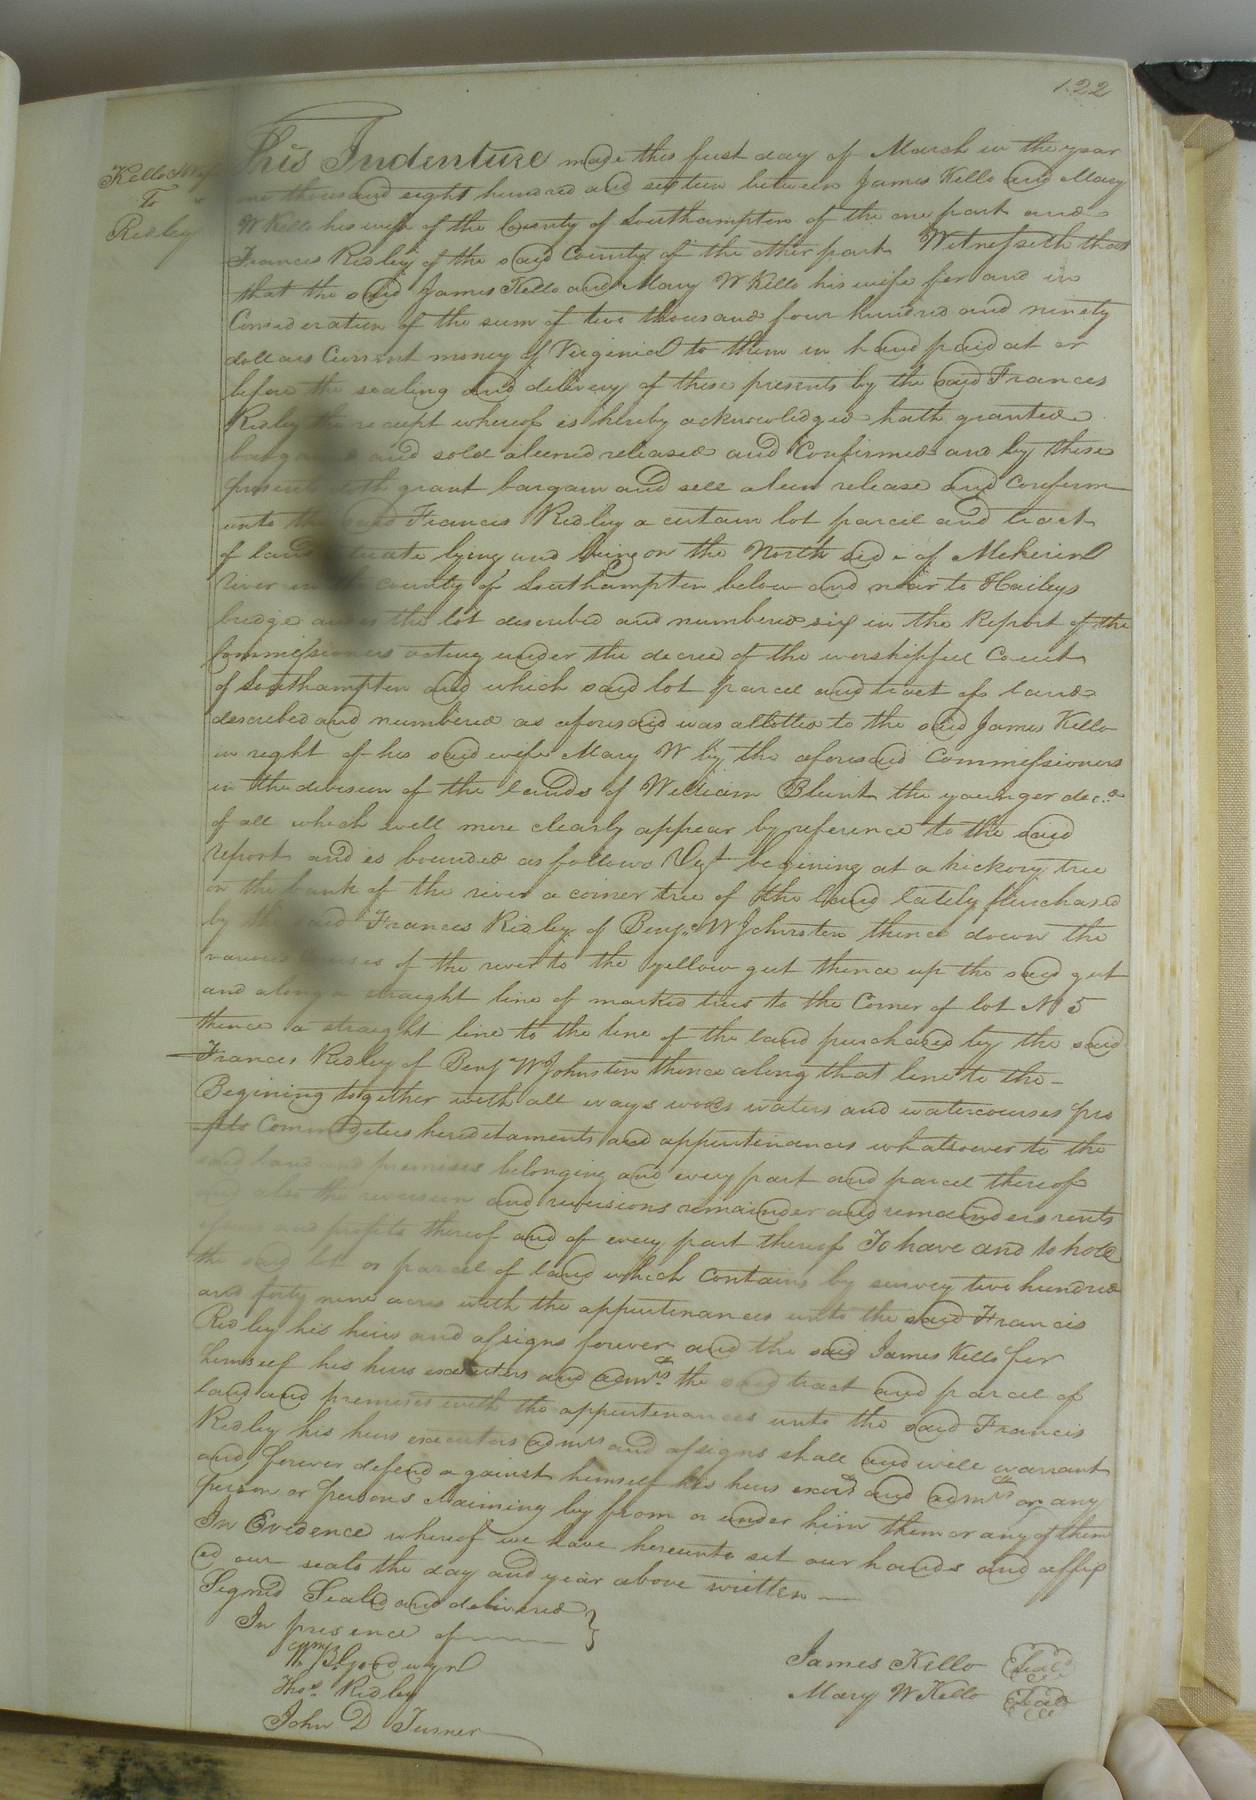 122
Kello & Wife
To
Ridley
This Indenture made this first day of March in the year
one thousand eight hundred and sixteen between James Kello and Mary
W Kello his wife of the County of Southampton of the one part and
Frances Ridley of the said County of the other part Witnesseth that
that the said James Kello and Mary W Kello his wife for and in
Consideration of the sum of two thousand four hundred and ninety
dollars Current money of Virginia to them in hand paid at or
before the sealing and delivery of these presents by the said Frances
Ridley the receipt whereof is hereby acknowledged hath granted
bargained and sold aliened released and Confirmed and by these
presents doth grant bargain and sell alien release and Confirm
unto the said Francis Ridley a certain lot parcel and tract
of land situate lying and being on the North side of Meherin
river in the county of Southampton below and near to Haileys
bridge and is the lot described and numbered six in the Report of the
Commissioners acting under the decree of the worshipful Court
of Southampton and which said lot parcel and tract of land
described and numbered as aforesaid was allotted to the said James Kello
in right of his said wife Mary W by the aforesaid Commissioners
in the division of the lands of William Blunt the younger decd
of all which will more clearly appear by reference to the said
report and is bounded as follows Vizt begining at a hickory tree
on the bank of the river a corner tree of the land lately purchased
by the said Frances Ridley of Benj. W Johnston thence down the
various Courses of the river to the yellow gut thence up the said gut
and along a straight line of marked trees to the Corner of lot No 5
thence a straight line to the line of the land purchased by the said
Frances Ridley of Benj W Johnston thence along that line to the
Begining together with all ways woods waters and watercourses pro
fits Commodities hereditaments and appurtenances whatsoever to the
said land and premises belonging and every part and parcel thereof
and also the reversion and reversions remainder and remainders rents
issues and profits thereof and of every part thereof To have and to hold
the said lot or parcel of land which Contains by survey two hundred
and forty nine acres with the appurtenances unto the said Francis
Ridley his heirs and assigns forever and the said James Kello for
himself his heirs executors and admrs the said tract and parcel of
land and premises with the appurtenances unto the said Francis
Ridley his heirs executors admrs and assigns shall and will warrant
and forever defend against himself his heirs exors and admrs or any
person or persons Claiming by from or under him them or any of them
In Evidence whereof we have hereunto set our hands and affix
ed our seals the day and year above written
Signed Sealed and delivered
In presence of
Wm B. Goodwyn
Thos. Ridley
John D Turner
James Kello Seal
Mary W Kello Seal